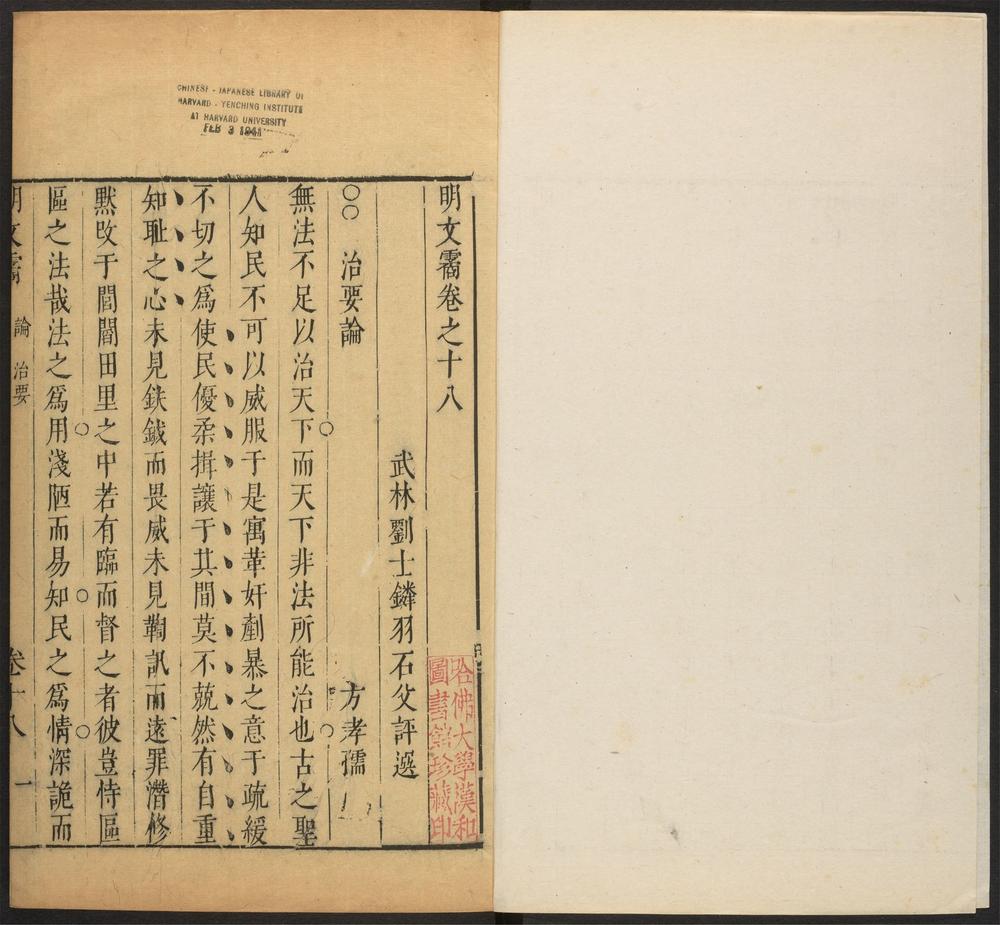 CHINESE - JAPANESE LIBRARY OF
HARVARD - YENCHING INSTITUTE
AT HARVARD UNIVERSITY
FEB 3 1941
明文霱卷之十八
武林劉士鏻羽石父評選
哈佛大學漢和
圖書館珍藏印
○○ 治要論 方孝孺
無法不足以治天下而天下非法所能治也古之聖
人知民不可以威服于是寓革奸剷暴之意于疏緩
不切之爲使民優柔揖讓于其間莫不兢然有自重
知恥之心未見鈇鉞而畏威未見鞫訊而遠罪潛修
默攺于閭閻田里之中若有臨而督之者彼豈恃區
區之法哉法之爲用淺陋而易知民之爲情深詭而
明文霱 論 治要 卷十八 一